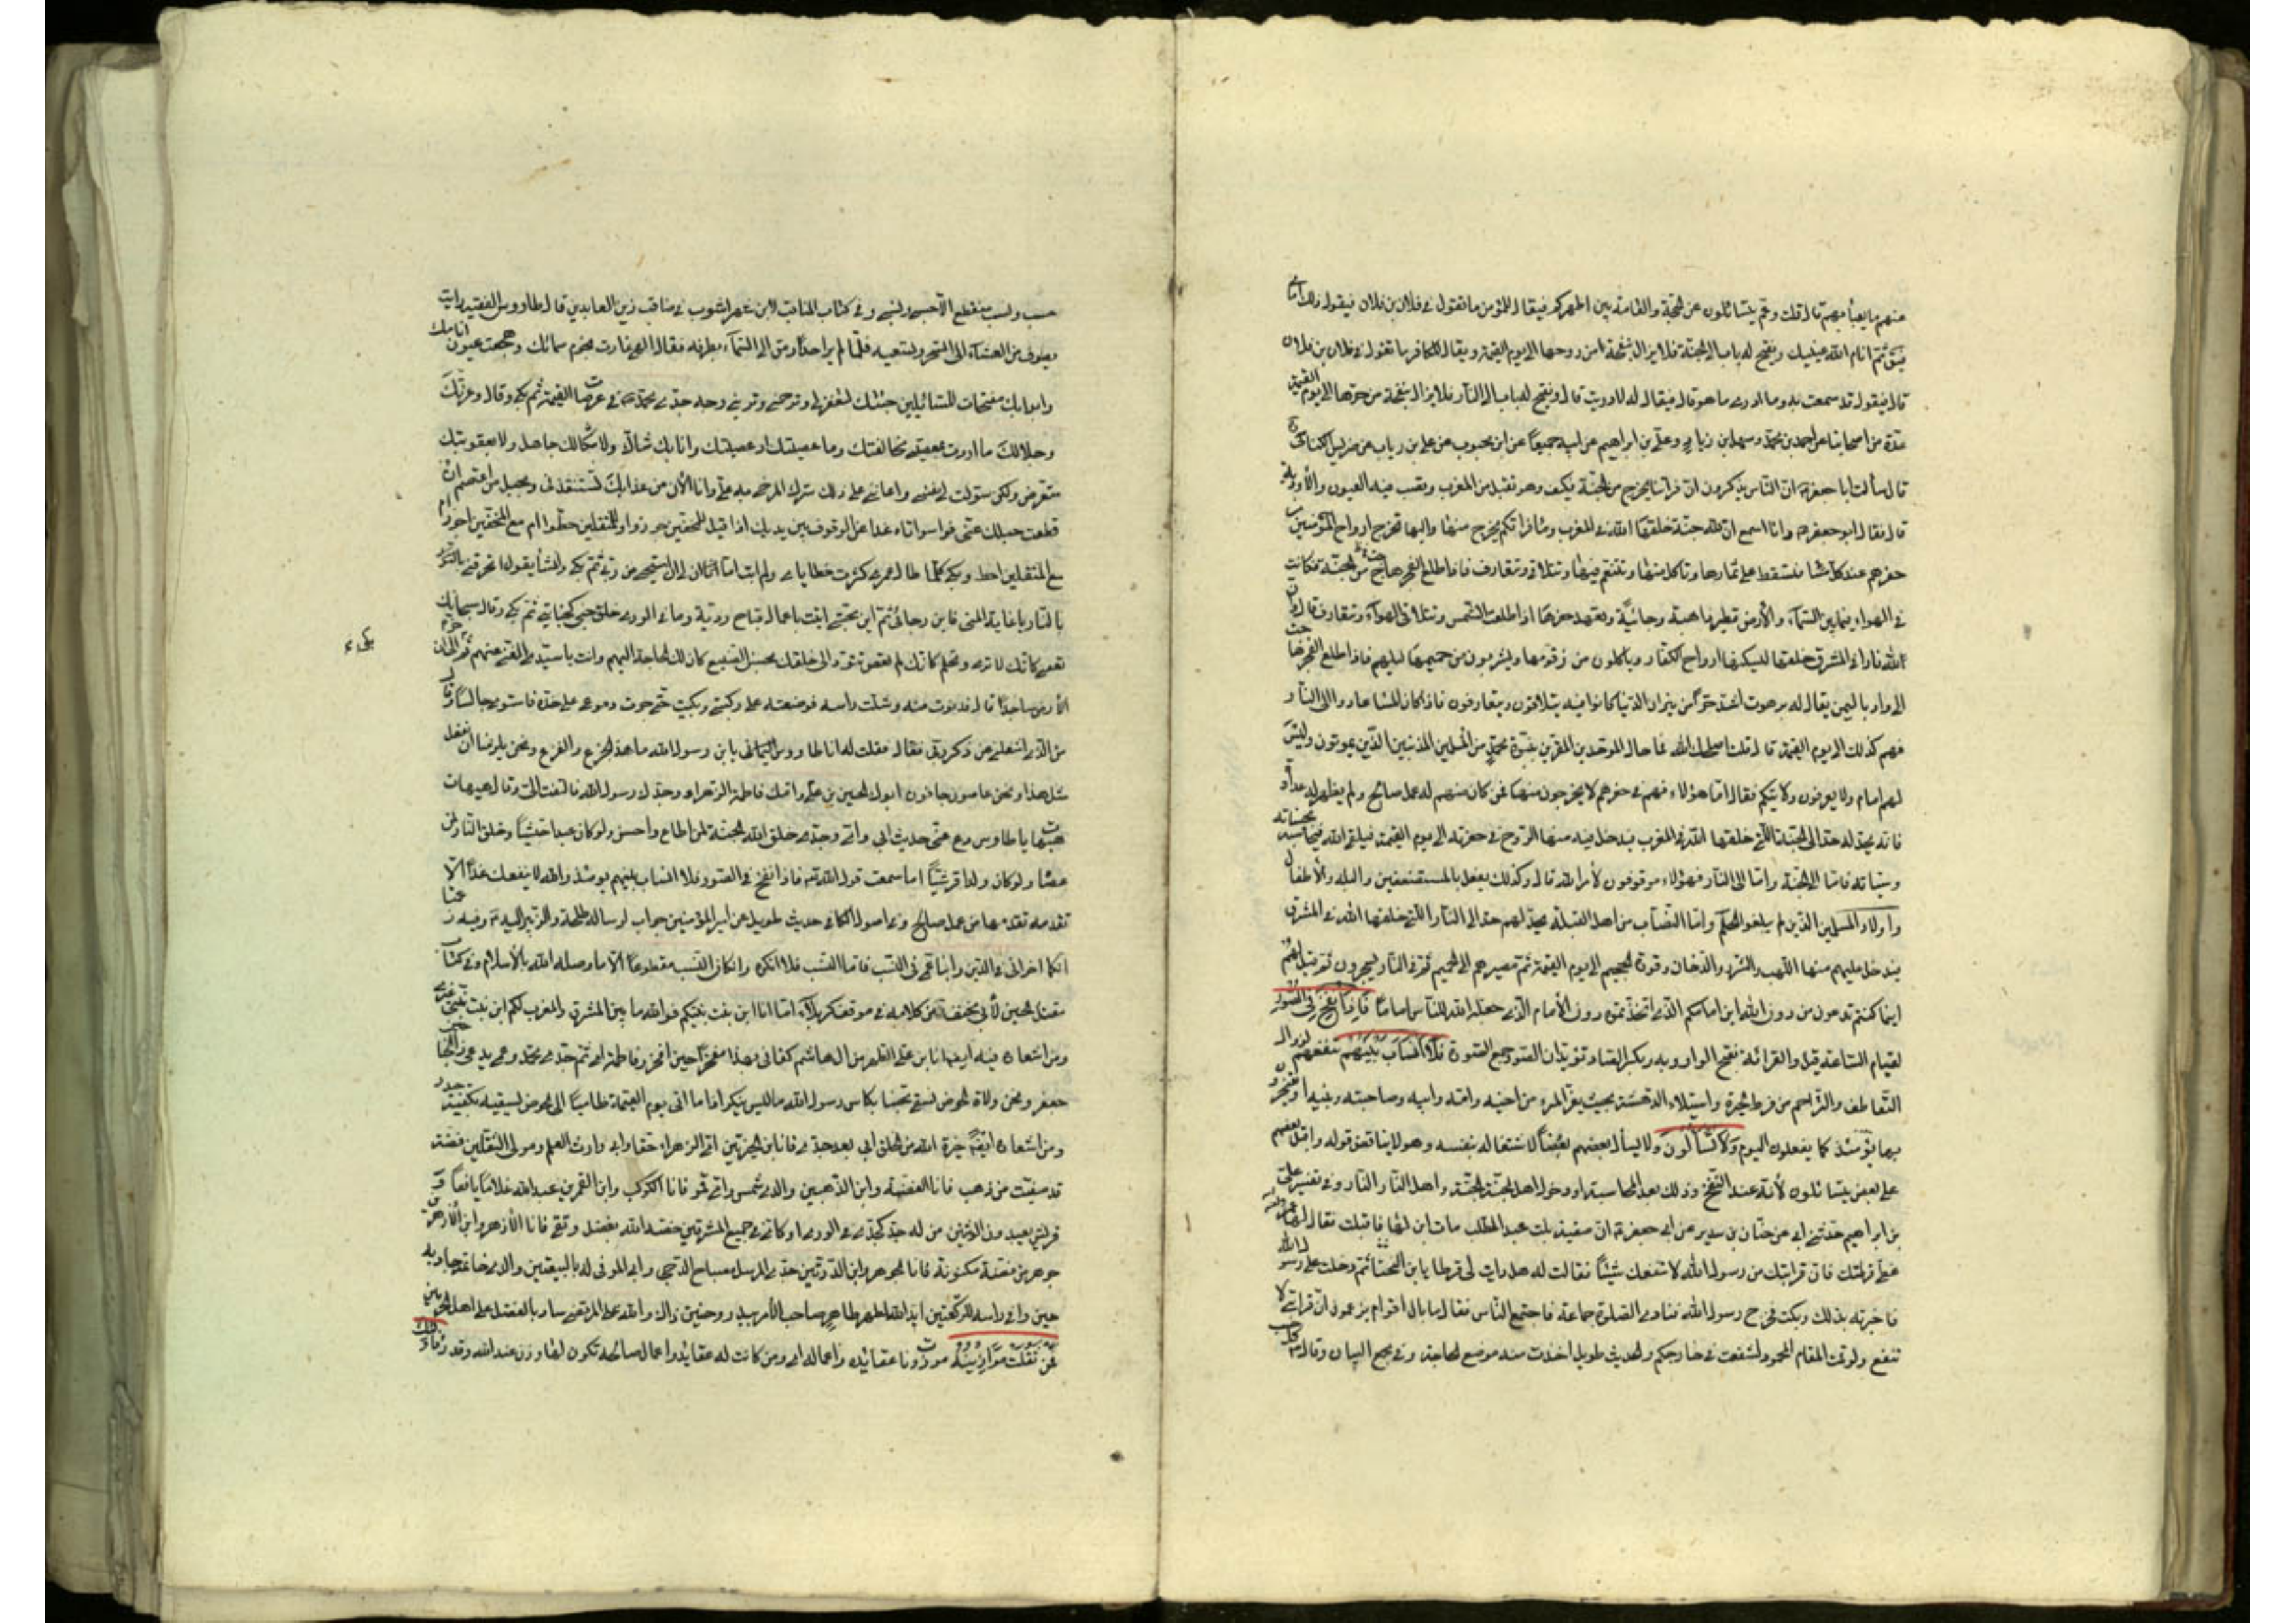 منهم ما يعبأ بهم قال قلت وعم يتسائلون عن الحجة والقائمة بين اظهركم فيقال للمؤمن ما تقول في فلان بن فلان فيقول ذلك امامي
فيقول نم انام الله عينيك ويفتح له باب الى الجنة فلا يزال ينفحه من روحها الى يوم القيمة ويقال للكافر ما تقول في فلان بن فلان
قال فيقول قد سمعت به وما ادرى ما هو قال فيقال له لا دريت قال ويفتح له باب الى النار فلا يزال ينفحه من حرها الى يوم القيمة
عدة من اصحابنا عن احمد بن محمد وسهل بن زياد وعلي بن ابراهيم عن ابيه جميعا عن ابن محبوب عن علي بن رياب عن ضريس الكناسي
قال سألت ابا جعفر ان الناس يذكرون ان فراتنا يخرج من الجنة فكيف وهو تقبل من المغرب وتصب فيه العيون والأودية
قال فقال ابو جعفر وانا اسمع ان لله جنة خلقها الله في المغرب وماء فراتكم يخرج منها واليها تخرج ارواح المؤمنين من
حفرهم عند كل مساء فتسقط على ثمارها وتأكل منها وتتنعم فيها وتتلاقى وتتعارف فاذا طلع الفجر هاجت من الجنة فكانت
في الهواء فيما بين السماء والأرض تطير ذاهبة وجائية وتعهد حفرها اذا طلعت الشمس وتتلاقى في الهواء وتتعارف قال وان
لله نارا في المشرق خلقها ليسكنها ارواح الكفار ويأكلون من زقومها ويشربون من حميمها ليلهم فاذا طلع الفجر هاجت
الى واد باليمن يقال له برهوت اشد حرا من نيران الدنيا كانوا فيه يتلاقون ويتعارفون فاذا كان المساء عادوا الى النار
فهم كذلك الى يوم القيمة قال قلت اصلحك الله فما حال الموحدين المقرين بنبوة محمد من المسلمين المذنبين الذين يموتون وليس
لهم امام ولا يعرفون ولايتكم فقال اما هؤلاء فهم في حفرهم لا يخرجون منها فمن كان منهم له عمل صالح ولم يظهر له عداوة
فانه يخد له خدا الى الجنة التي خلقها الله في المغرب فيدخل فيه منها الروح في حفرته الى يوم القيمة فيلقى الله فيحاسبه بحسناته
وسيئاته فاما الى الجنة واما الى النار فهؤلاء موقوفون لأمر الله قال وكذلك يفعل بالمستضعفين والبله والأطفال
واولاد المسلمين الذين لم يبلغوا الحلم واما النصاب من اهل القبلة يخد لهم خدا الى النار التي خلقها الله في المشرق
فيدخل عليهم منها اللهب والشرر والدخان وفورة الجحيم الى يوم القيمة ثم مصيرهم الى الحميم ثم في النار يسجرون ثم قيل لهم
اينما كنتم تدعون من دون الله اين امامكم الذي اتخذتموه دون الأمام الذي جعله الله للناس اماما فاذا نفخ في الصور
لقيام الساعة قيل والقرائة بفتح الواو وبه وبكسر الصاد تؤيد ان الصور جمع الصورة فلا انساب بينهم تنفعهم لزوال
التعاطف والتراحم من فرط الحيرة واستيلاء الدهشة بحيث يفر المرء من اخيه وامه وابيه وصاحبته وبنيه او يفتخرون
بها يومئذ كما يفعلون اليوم ولا يتسائلون ولا يسأل بعضهم بعضا لاشتغاله بنفسه وهو لا يناقض قوله واقبل بعضهم
على بعض يتسائلون لأنه عند النفخ وذلك بعد المحاسبة او دخول اهل الجنة الجنة واهل النار النار وفي تفسير علي
بن ابراهيم حدثني ابي عن حنان بن سدير عن ابي جعفر ان صفية بنت عبد المطلب مات ابن لها فاقبلت فقال لها عمر
غطي قرطك فان قرابتك من رسول الله لا تنفعك شيئا فقالت له هل رايت لي قرطا يا ابن اللخناء ثم دخلت على رسول الله
فاخبرته بذلك وبكت فخرج رسول الله فنادى الصلوة جماعة فاجتمع الناس فقال ما بال اقوام يزعمون ان قرابتي لا
تنفع ولو قمت المقام المحمود لشفعت في خارجكم والحديث طويل اخذت منه موضع الحاجة وفي مجمع البيان وقال كل
حسب ونسب منقطع الا حسبي ونسبي وفي كتاب المناقب لابن شهر اشوب في مناقب زين العابدين قال طاووس الفقيه رايته
يطوف من العشاء الى السحر ويتعبد فلما لم ير احدا رمق الى السماء بطرفه فقال الهي غارت نجوم سمائك وهجعت عيون انامك
وابوابك مفتحات للسائلين جئتك لتغفر لي وترحمني وتريني وجه جدي محمد في عرصات القيمة ثم بكى وقال وعزتك
وجلالك ما اردت بمعصيتي مخالفتك وما عصيتك اذ عصيتك وانا بك شاك ولا بنكالك جاهل ولا لعقوبتك
متعرض ولكن سولت لي نفسي واعانني على ذلك سترك المرخى به علي وانا الأن من عذابك من يستنقذني وبحبل من اعتصم ان
قطعت حبلك عني فواسوأتاه غدا من الوقوف بين يديك اذا قيل للمخفين جوزوا وللمثقلين حطوا ام مع المخفين اجوز ام
مع المثقلين احط ويلي كلما طال عمري كثرت خطاياي ولم اتب اما آن لي ان استحي من ربي ثم بكى وانشأ يقول اتحرقني بالنار
يا غاية المنى فاين رجائي ثم اين محبتي اتيت باعمال قباح ردية وما في الورى خلق جنى كجنايتي ثم بكى وقال سبحانك
تعصى كانك لا ترى وتحلم كانك لم تعص تتودد الى خلقك بحسن الصنيع كان لك الحاجة اليهم وانت يا سيدي الغني عنهم ثم خر الى
الأرض ساجدا قال فدنوت منه وشلت راسه فوضعته على ركبتي وبكيت حتى جرت دموعي على خده فاستوى جالسا وقال
من الذي اشغلني عن ذكر ربي فقال فقلت له انا طاووس اليماني يابن رسول الله ما هذا الجزع والفزع ونحن يلزمنا ان نفعل
مثل هذا ونحن عاصون جافون ابوك الحسين بن علي وامك فاطمة الزهراء وجدك رسول الله فالتفت الي وقال هيهات
هيهات يا طاوس دع عني حديث ابي وامي وجدي خلق الله الجنة لمن اطاع واحسن ولو كان عبدا حبشيا وخلق النار لمن
عصاه ولو كان ولدا قرشيا اما سمعت قول الله فاذا نفخ في الصور فلا انساب بينهم يومئذ والله لا ينفعك غدا الا
تقدمة تقدمها من عمل صالح وفي اصول الكافي حديث طويل عن امير المؤمنين جواب لرسالة طلحة والزبير اليه وفيه زعمتما
انكما اخواني في الدين وابنا عمي في النسب فاما النسب فلا انكره وان كان النسب مقطوعا الا ما وصله الله بالأسلام وفي كتاب
مقتل الحسين لأبي مخنف من كلامه في موقف كربلاء اما انا ابن بنت نبيكم فوالله ما بين المشرق والمغرب لكم ابن بنت نبي غيري
ومن اشعاره فيه ايضا انا بن علي الطهر من ال هاشم كفاني بهذا مفخرا حين افخر وفاطمة امي ثم جدي محمد وعمي يدعى ذا الجناحين
جعفر ونحن ولاة الحوض نسقي محبنا بكاس رسول الله ما ليس ينكر اذا ما اتى يوم القيمة ظاميا الى الحوض يسقيه بكفيه حيدر
ومن اشعاره ايضا خيرة الله من الخلق ابي بعد جدي فانا ابن الخيرتين امي الزهراء حقا وابي وارث العلم ومولى الثقلين فضة
قد صفيت من ذهب فانا الفضة وابن الذهبين والدي شمس وامي قمر فانا الكوكب وابن القمرين عبد الله غلاما يافعا و
قريش يعبدون الوثنين من له جد كجدي في الورى او كامي في جميع المشرقين خصه الله بفضل وتقى فانا الأزهر وابن الأزهرين
جوهر من فضة مكنونة فانا الجوهر وابن الدرتين جدي المرسل مصباح الدجى وابي الموفى له بالبيعتين والذي خاتمه جاد به
حين وافى راسه للركعتين ايد الله بطهر طاهر صاحب الأمر ببدر وحنين ذاك والله علي المرتضى ساد بالفضل على اهل الحرمين
فمن ثقلت موازينه موزونات عقائده واعماله اي ومن كانت له عقايد واعمال صالحة تكون لها وزن عند الله وقدر فاولئك